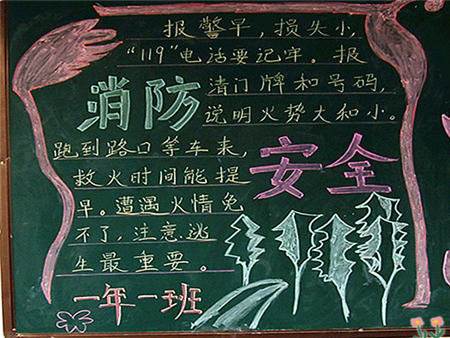 报警早,损失小,
“119”电话要记牢。报
清门牌和号码,
消防
说明火势大和小。
跑到路口等车来,
救火时间能提
安全
早。遭遇火情免
不了,注意逃
生最重要。
一年一班